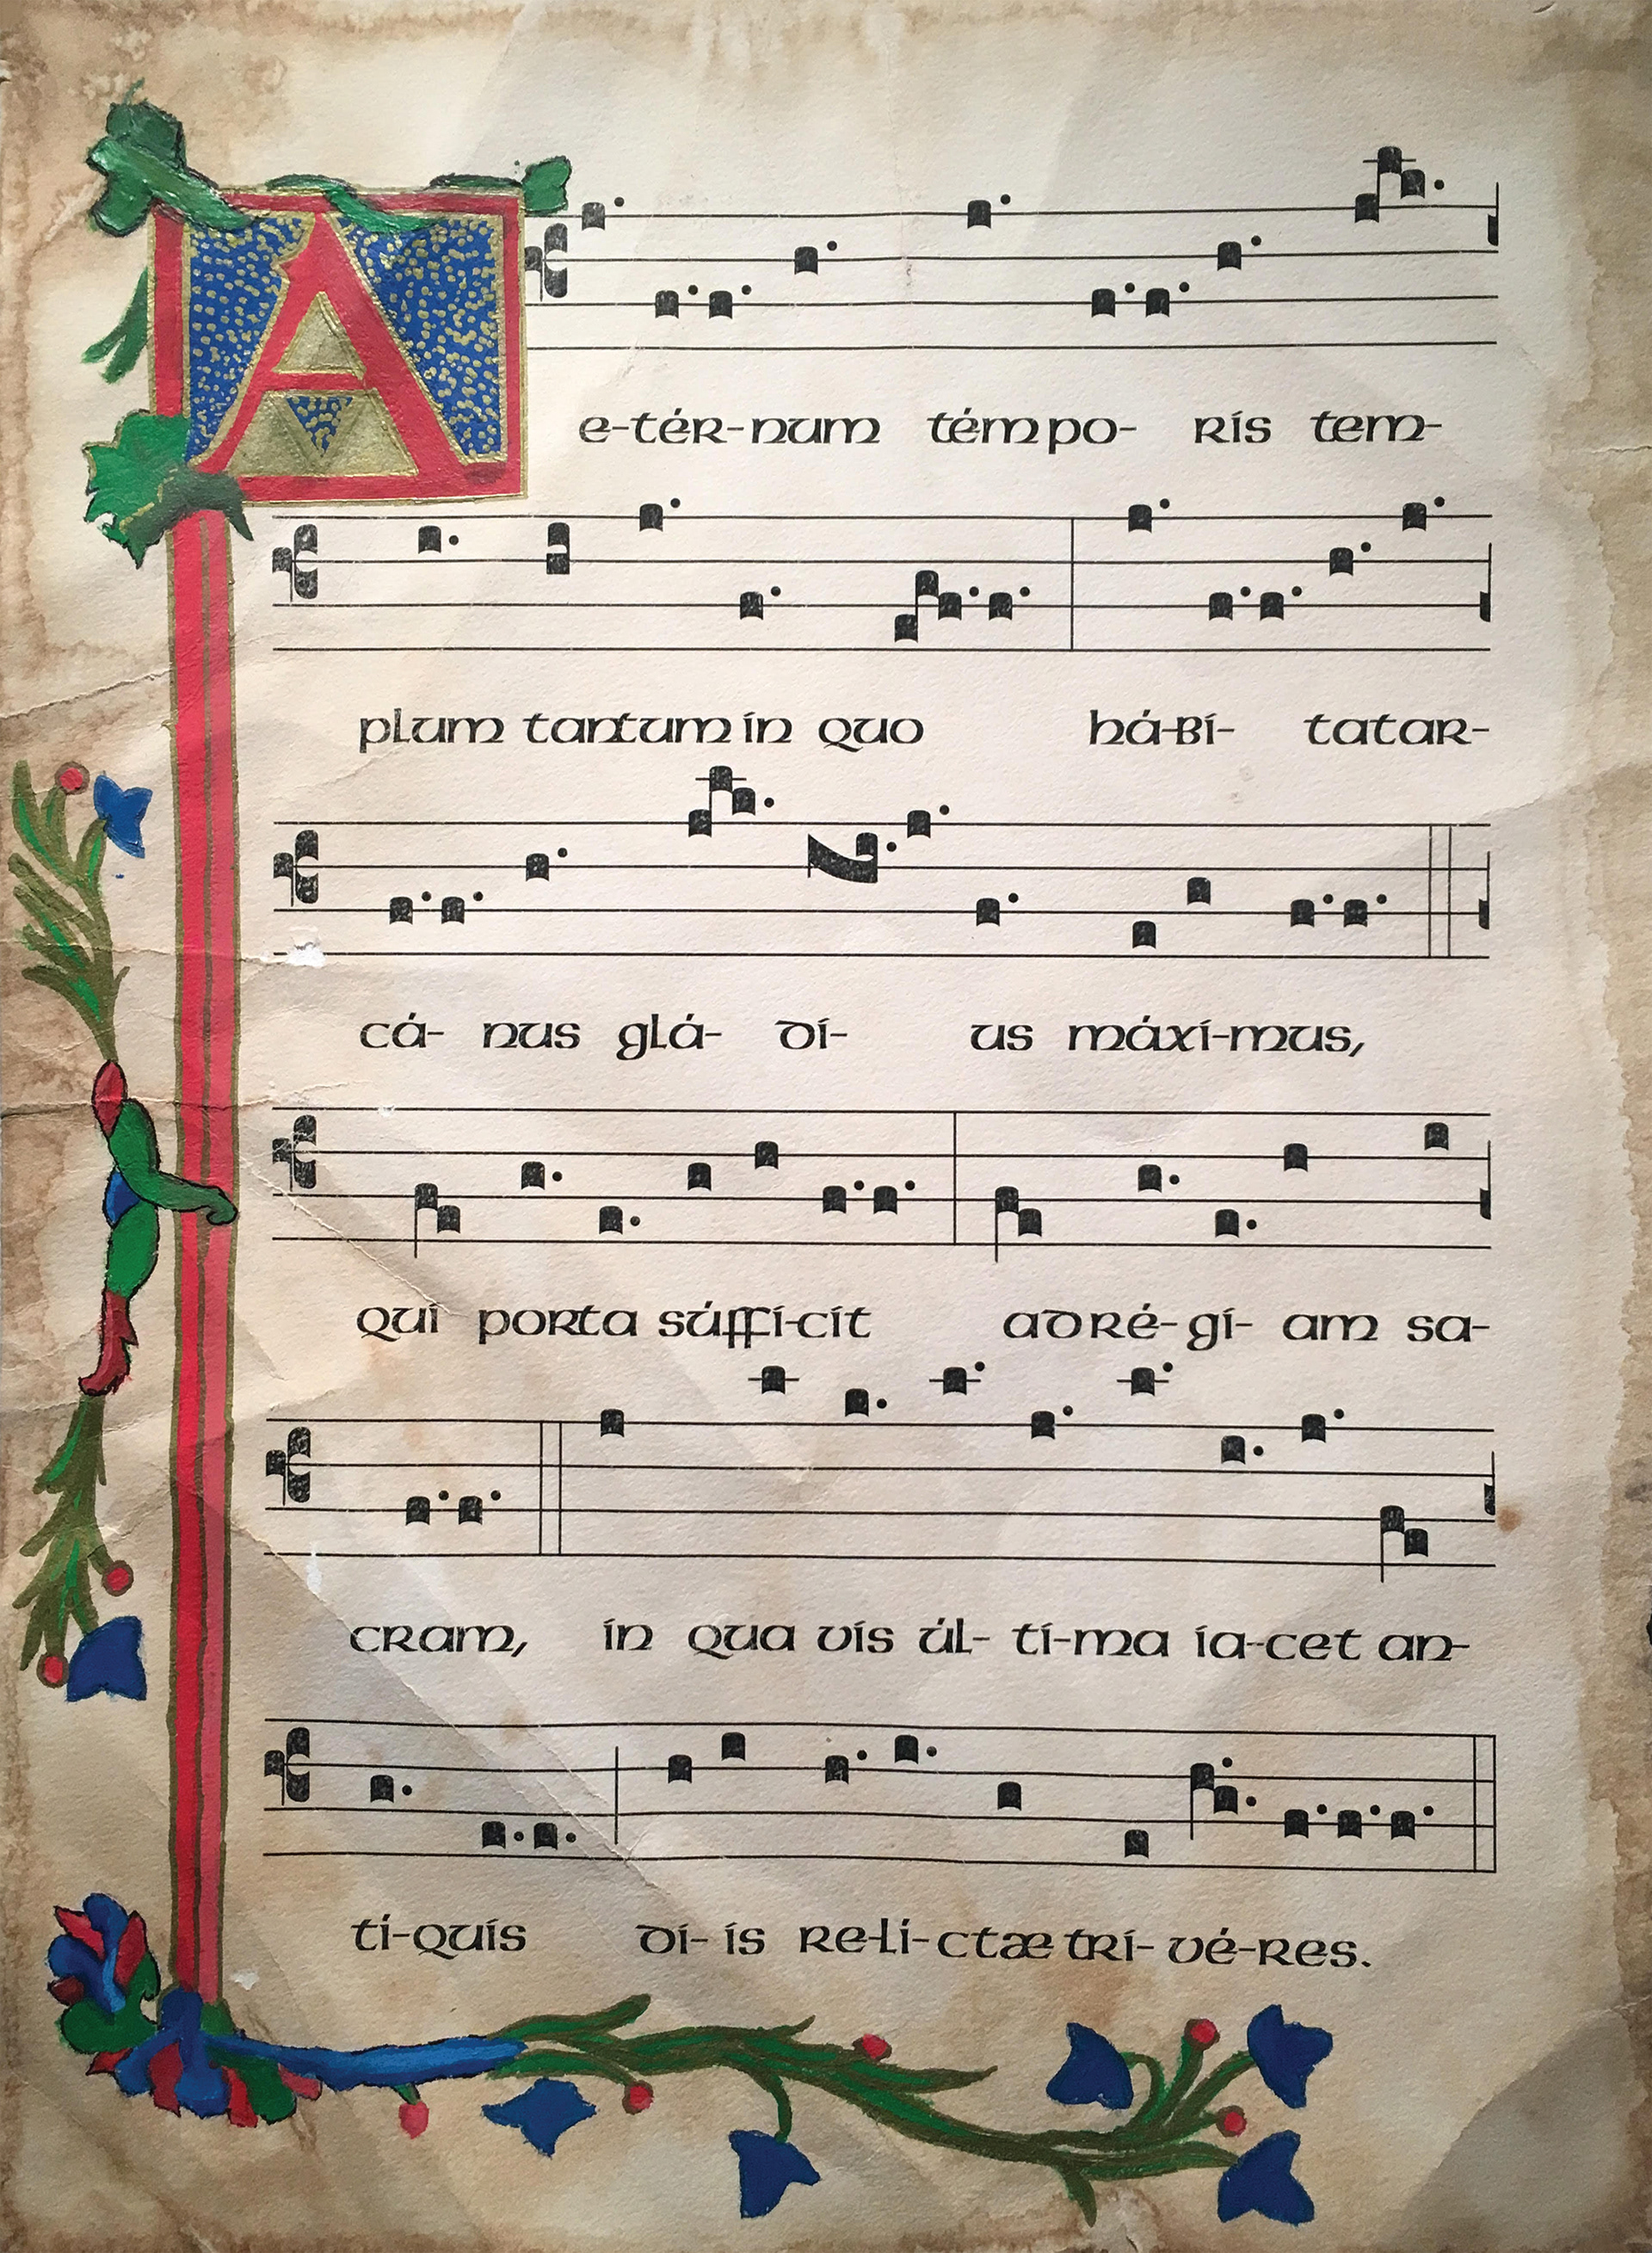 Ae-tér-num témpo- ris tem-
plum tantum in quo há-bi- tat ar-
cá- nus glá- di- us máxi-mus,
qui porta súffi-cit ad ré- gi- am sa-
cram, in qua vis úl- ti-ma ia-cet an-
tí-quis di- is re-li-ctæ tri- vé-res.